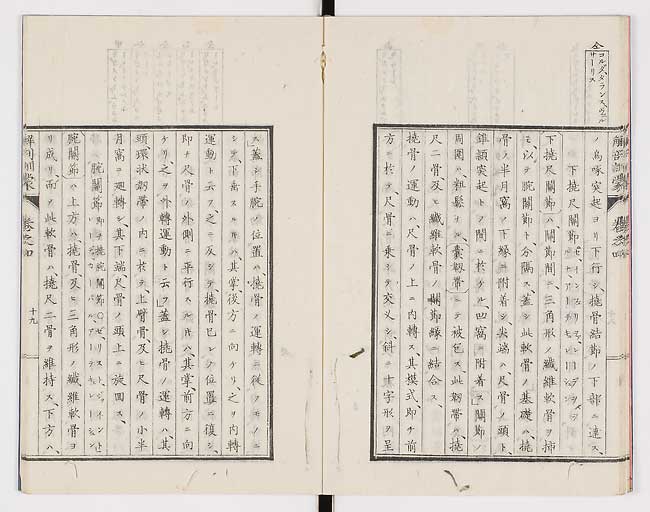 仝コルダ、タランスヴェル
サーリス
ノ烏喙突起ヨリ下行シ、撓骨結節ノ下部ニ連ス、
下撓尺關節
下撓尺關節ハ關節間ニ三角形ノ纖維軟骨ヲ挿
ミ、以テ腕關節ト、分隔ス、蓋シ此軟骨ノ基礎ハ、撓
骨ノ半月窩ノ下緣ニ附着シ、尖端ハ、尺骨ノ頭ト、
錐頭突起トノ間ニ於ケル、凹窩ニ附着ス、關節ノ
周圍ハ、粗鬆ナル、囊韌帶ニテ被包ス、此韌帶ハ、撓
尺二骨、及ヒ纖維軟骨ノ關節緣ニ結合ス、
撓骨ノ運動ハ尺骨ノ上ニ内轉ス、其模式、即チ前
方ニ於テ、尺骨ニ乗シテ交叉シ、斜ニ十字形ヲ呈
ス、蓋シ手腕ノ位置ハ、撓骨ノ運轉ニ從フモノニ
シテ、下垂スル片ハ、其掌、後方ニ向ケリ、之ヲ内轉
運動ト云フ、之ニ反シテ、撓骨已レノ位置ニ復シ、
即チ尺骨ノ外側ニ平行スル片ハ、其掌、前方ニ向
ケリ、之ヲ外轉運動ト云フ、蓋シ撓骨ノ運轉ハ、其
頭、環狀韌帶ノ内ニ於テ、上臂骨及ヒ尺骨ノ小半
月窩ニ廻轉シ、其下端、尺骨ノ頭上ニ旋回ス、
腕關節
腕關節ハ上方ハ、撓骨及ヒ三角形ノ纖維軟骨ヨ
リ成リ、而シテ此軟骨ハ、撓尺二骨ヲ維持ス、下方ハ、
解剖訓蒙
卷之四
十九